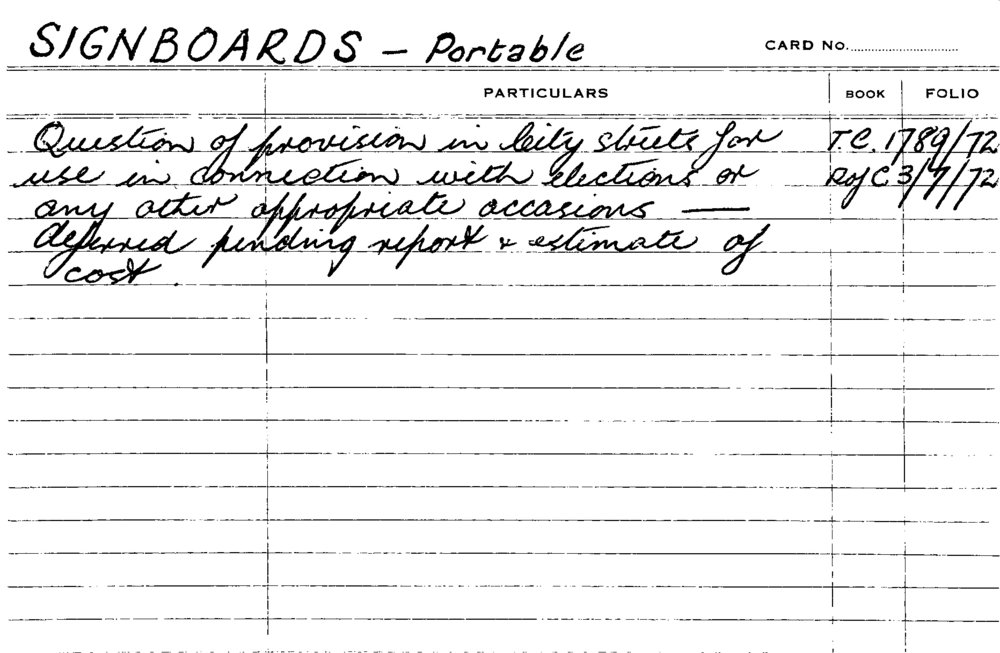 SIGNBOARDS – Portable CARD No.
PARTICULARS BOOK FOLIO
Question of provision in City streets for T.C. 1789/72
use in connection with elections or R of C 3/7/72
any other appropriate occasions —
deferred pending report & estimate of
cost.